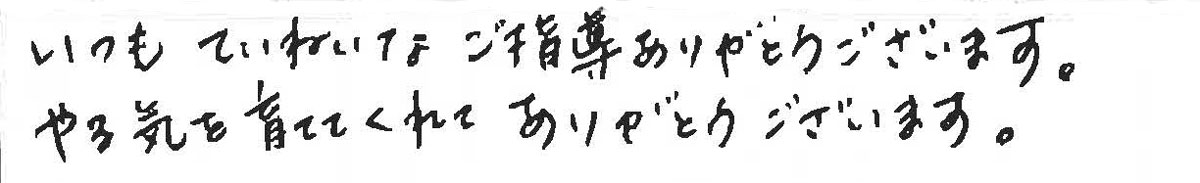 いつもていねいなご指導ありがとうございます。
やる気を育ててくれてありがとうございます。